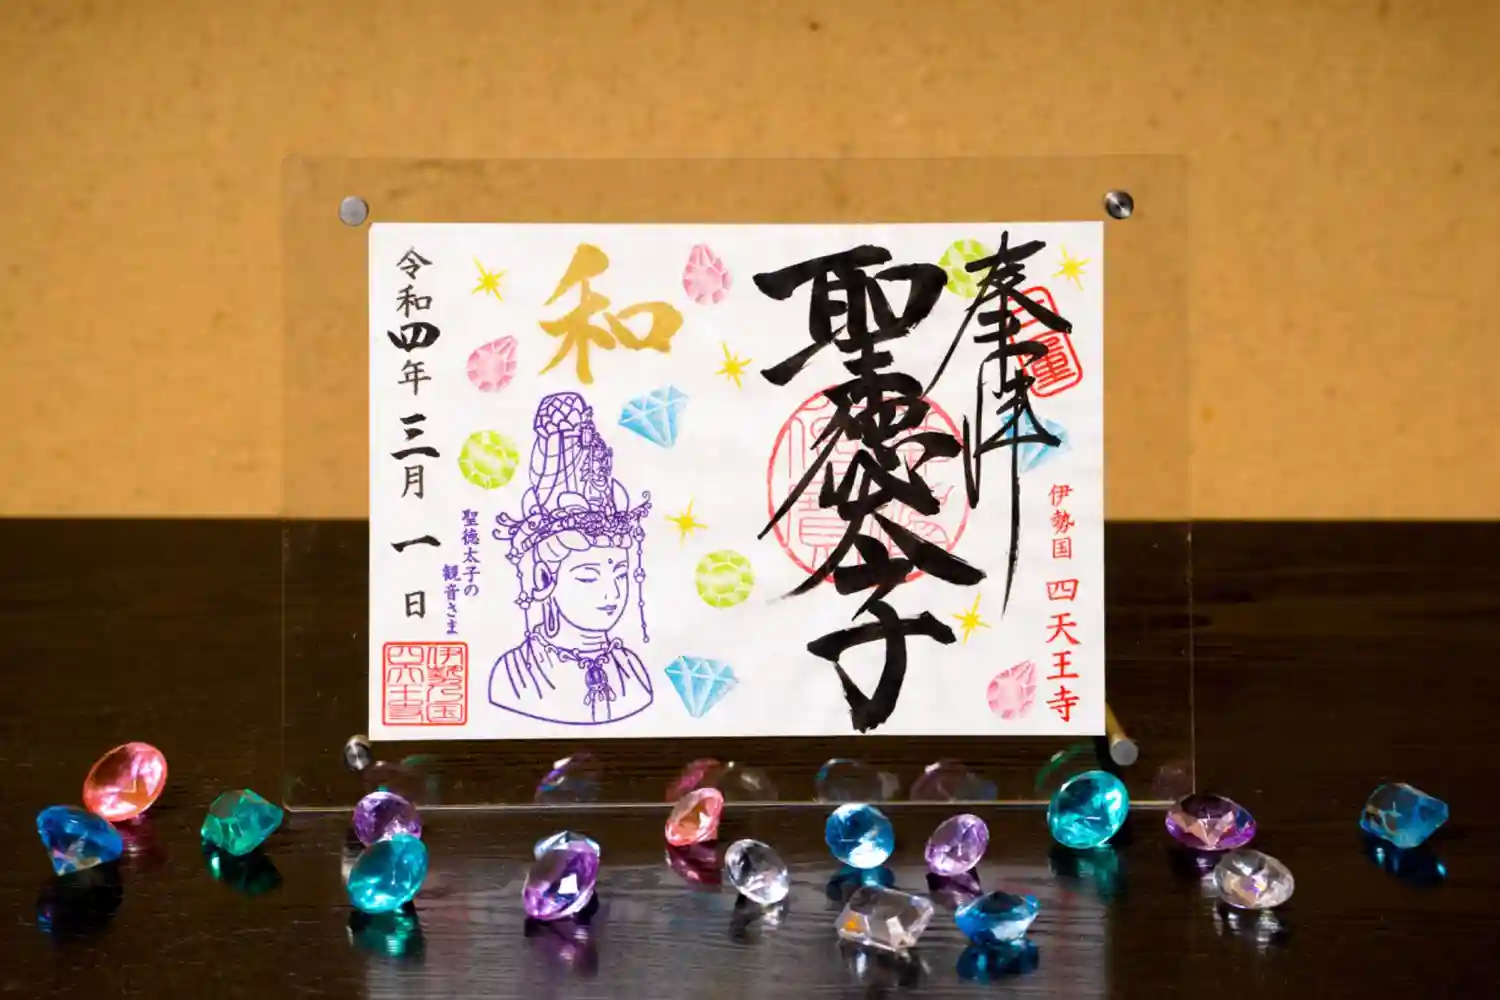 奉拝
聖徳太子
伊勢国 四天王寺
和
聖徳太子の
観音さま
令和四年三月一日
伊勢乃国
四天王寺